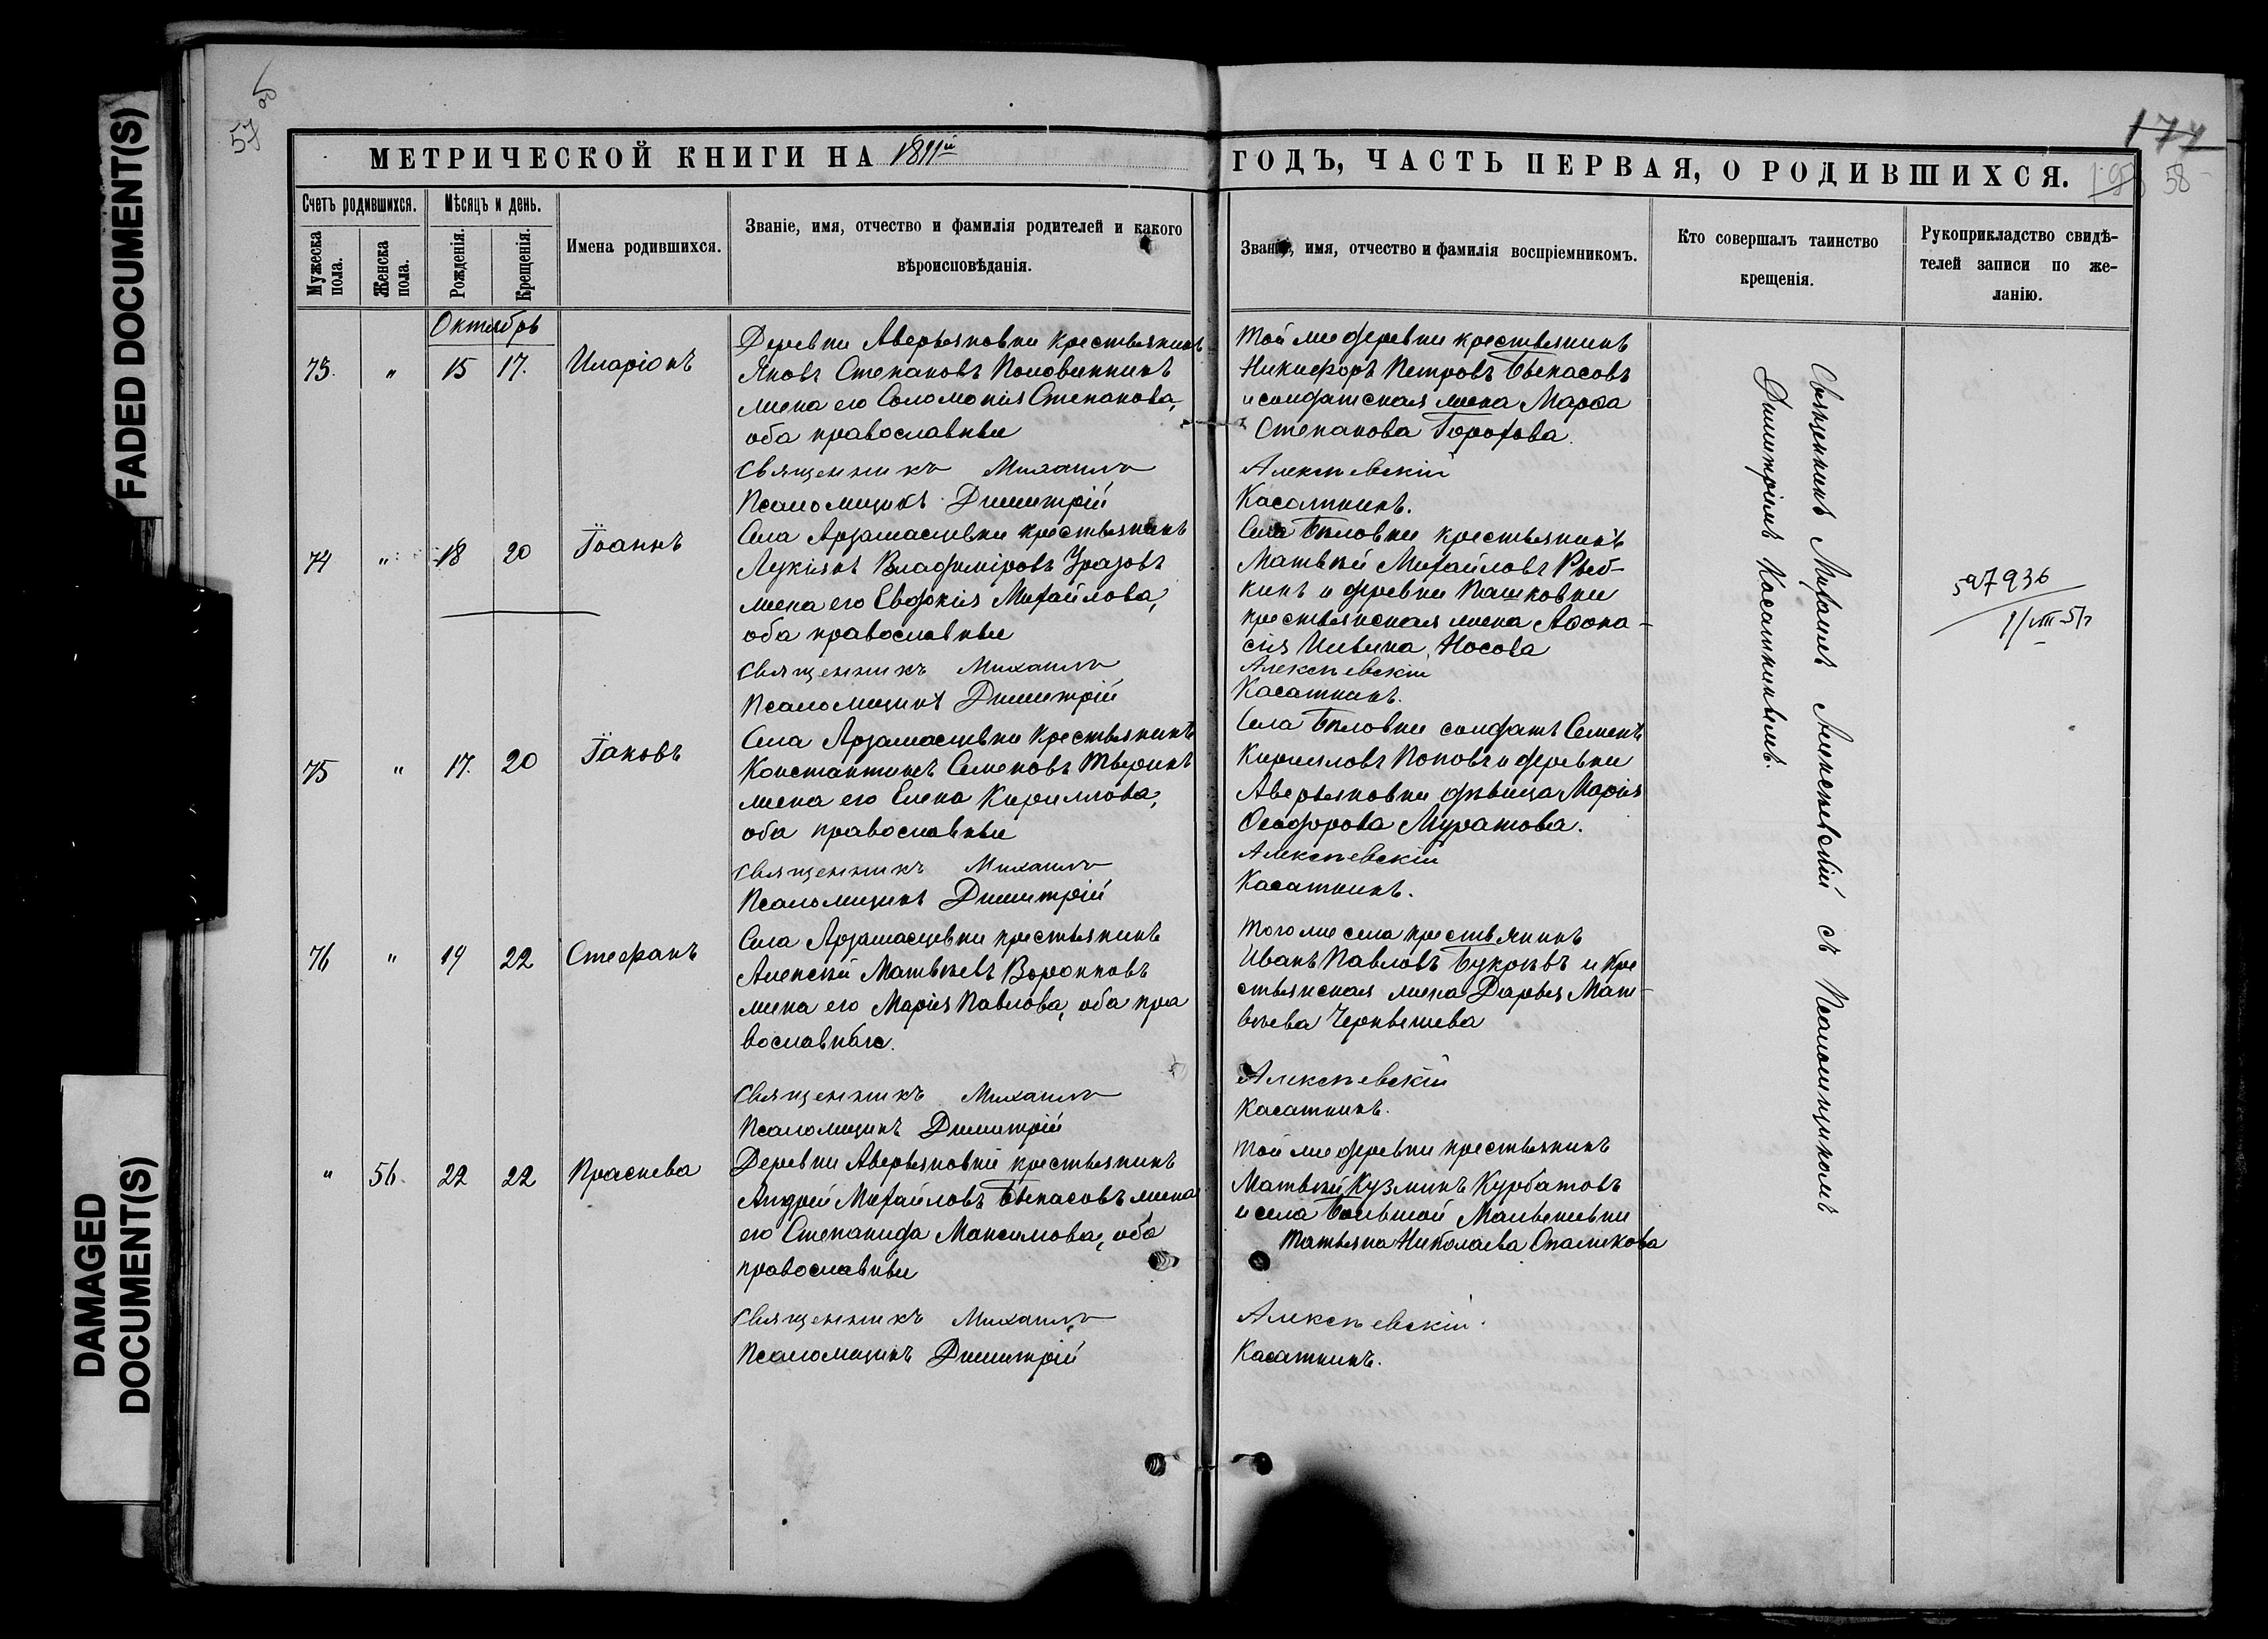 FADED DOCUMENT(S)
DAMAGED
DOCUMENT(S)
57
174
58
МЕТРИЧЕСКОЙ КНИГИ НА
ГОДЪ, ЧАСТЬ ПЕРВАЯ, О РОДИВШИХСЯ.
Счетъ родившихся.
Мужеска пола.
Женска пола.
Мѣсяцъ и день.
Рожденія.
Крещенія.
Имена родившихся.
Званіе, имя, отчество и фамилія родителей и какого
вѣроисповѣданія.
Званіе, имя, отчество и фамилія воспріемниковъ.
Кто совершалъ таинство
крещенія.
Рукоприкладство свидѣ-
телей записи по же-
ланію.
Октябрь
73. " 15 17. Иларіонъ
Деревни Аверьяновки крестьянинъ
Яковъ Степановъ Половинкинъ
жена его Соломонія Степанова,
оба православные
Той же деревни крестьянинъ
Никифоръ Петровъ Бекасовъ
и солдатская жена Марѳа
Степанова Горохова.
Священникъ Михаилъ Алексѣевскій
Псаломщикъ Димитрій Касаткинъ.
74 " 18 20 Іоаннъ
Села Арзамасцевки крестьянинъ
Лукіянъ Владиміровъ Уразовъ
жена его Евдокія Михайлова,
оба православные
Села Бѣловки крестьянинъ
Матвѣй Михайловъ Рыб-
кинъ и деревни Пашковки
крестьянская жена Аѳона-
сія Ильина Носова
Священникъ Михаилъ Алексѣевскій
Псаломщикъ Димитрій Касаткинъ.
75 " 17. 20 Іаковъ
Села Арзамасцевки крестьянинъ
Константинъ Семеновъ
жена его Елена Кириллова,
оба православные
Села Бѣловки солдатъ Семенъ
Кирилловъ Поповъ и деревни
Аверьяновки дѣвица Марія
Ѳеодорова Муратова.
Священникъ Михаилъ Алексѣевскій
Псаломщикъ Димитрій Касаткинъ.
76 " 19 22 Стефанъ
Села Арзамасцевки крестьянинъ
Алексѣй Матвѣевъ Воронковъ
жена его Марія Павлова, оба пра
вославные.
Того же села крестьянинъ
Иванъ Павловъ и кре
стьянская жена Дарья Мат-
вѣева Чернышева
Священникъ Михаилъ Алексѣевскій
Псаломщикъ Димитрій Касаткинъ.
" 56. 22 22 Параскева
Деревни Аверьяновки крестьянинъ
Андрей Михайловъ Бекасовъ жена
его Степанида Максимова, оба
православные
Той же деревни крестьянинъ
Матвѣй Кузминъ Курбатовъ
и села Большой
Татьяна Николаева
Священникъ Михаилъ Алексѣевскій.
Псаломщикъ Димитрій Касаткинъ.
Священникъ Михаилъ Алексѣевскій съ Псаломщикомъ
Димитріемъ Касаткинымъ.
597936